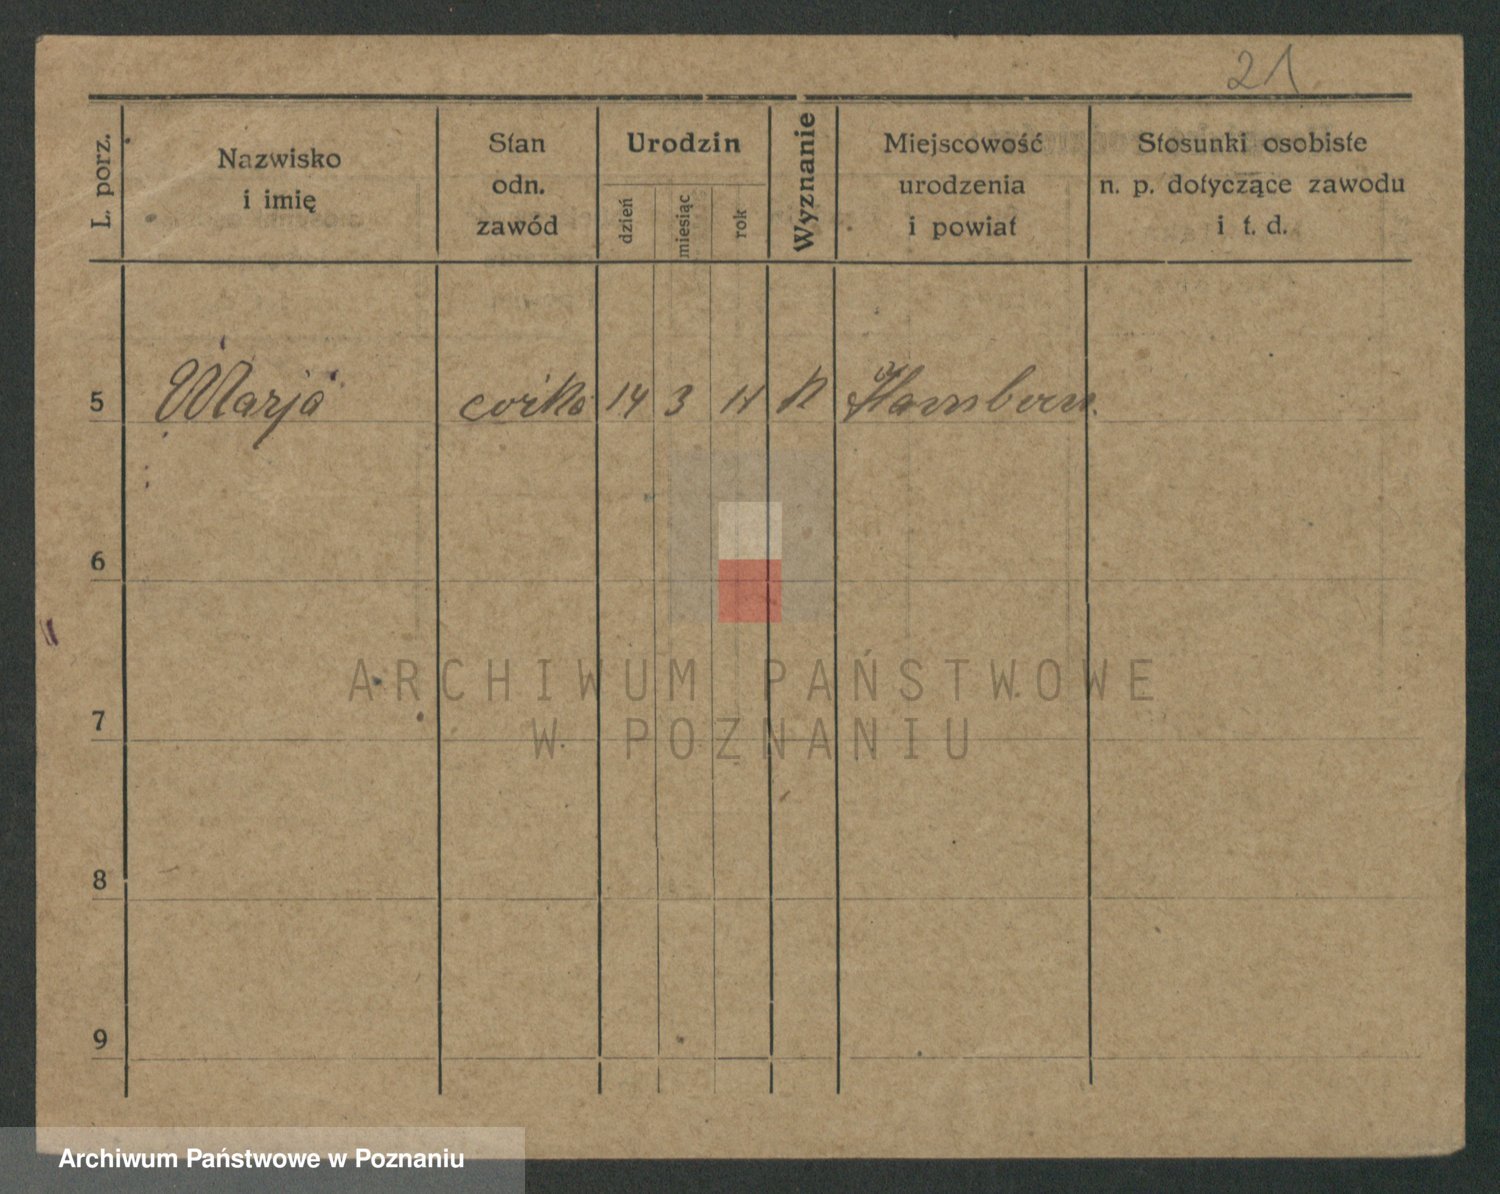 21
L. porz.
Nazwisko
i imię
Stan
odn.
zawód
Urodzin
dzień
miesiąc
rok
Wyznanie
Miejscowość
urodzenia
i powiat
Stosunki osobiste
n. p. dotyczące zawodu
i t. d.
5 Marja córka 14 3 11 k Hamborn.
6
7
8
9
ARCHIWUM PAŃSTWOWE
W POZNANIU
Archiwum Państwowe w Poznaniu